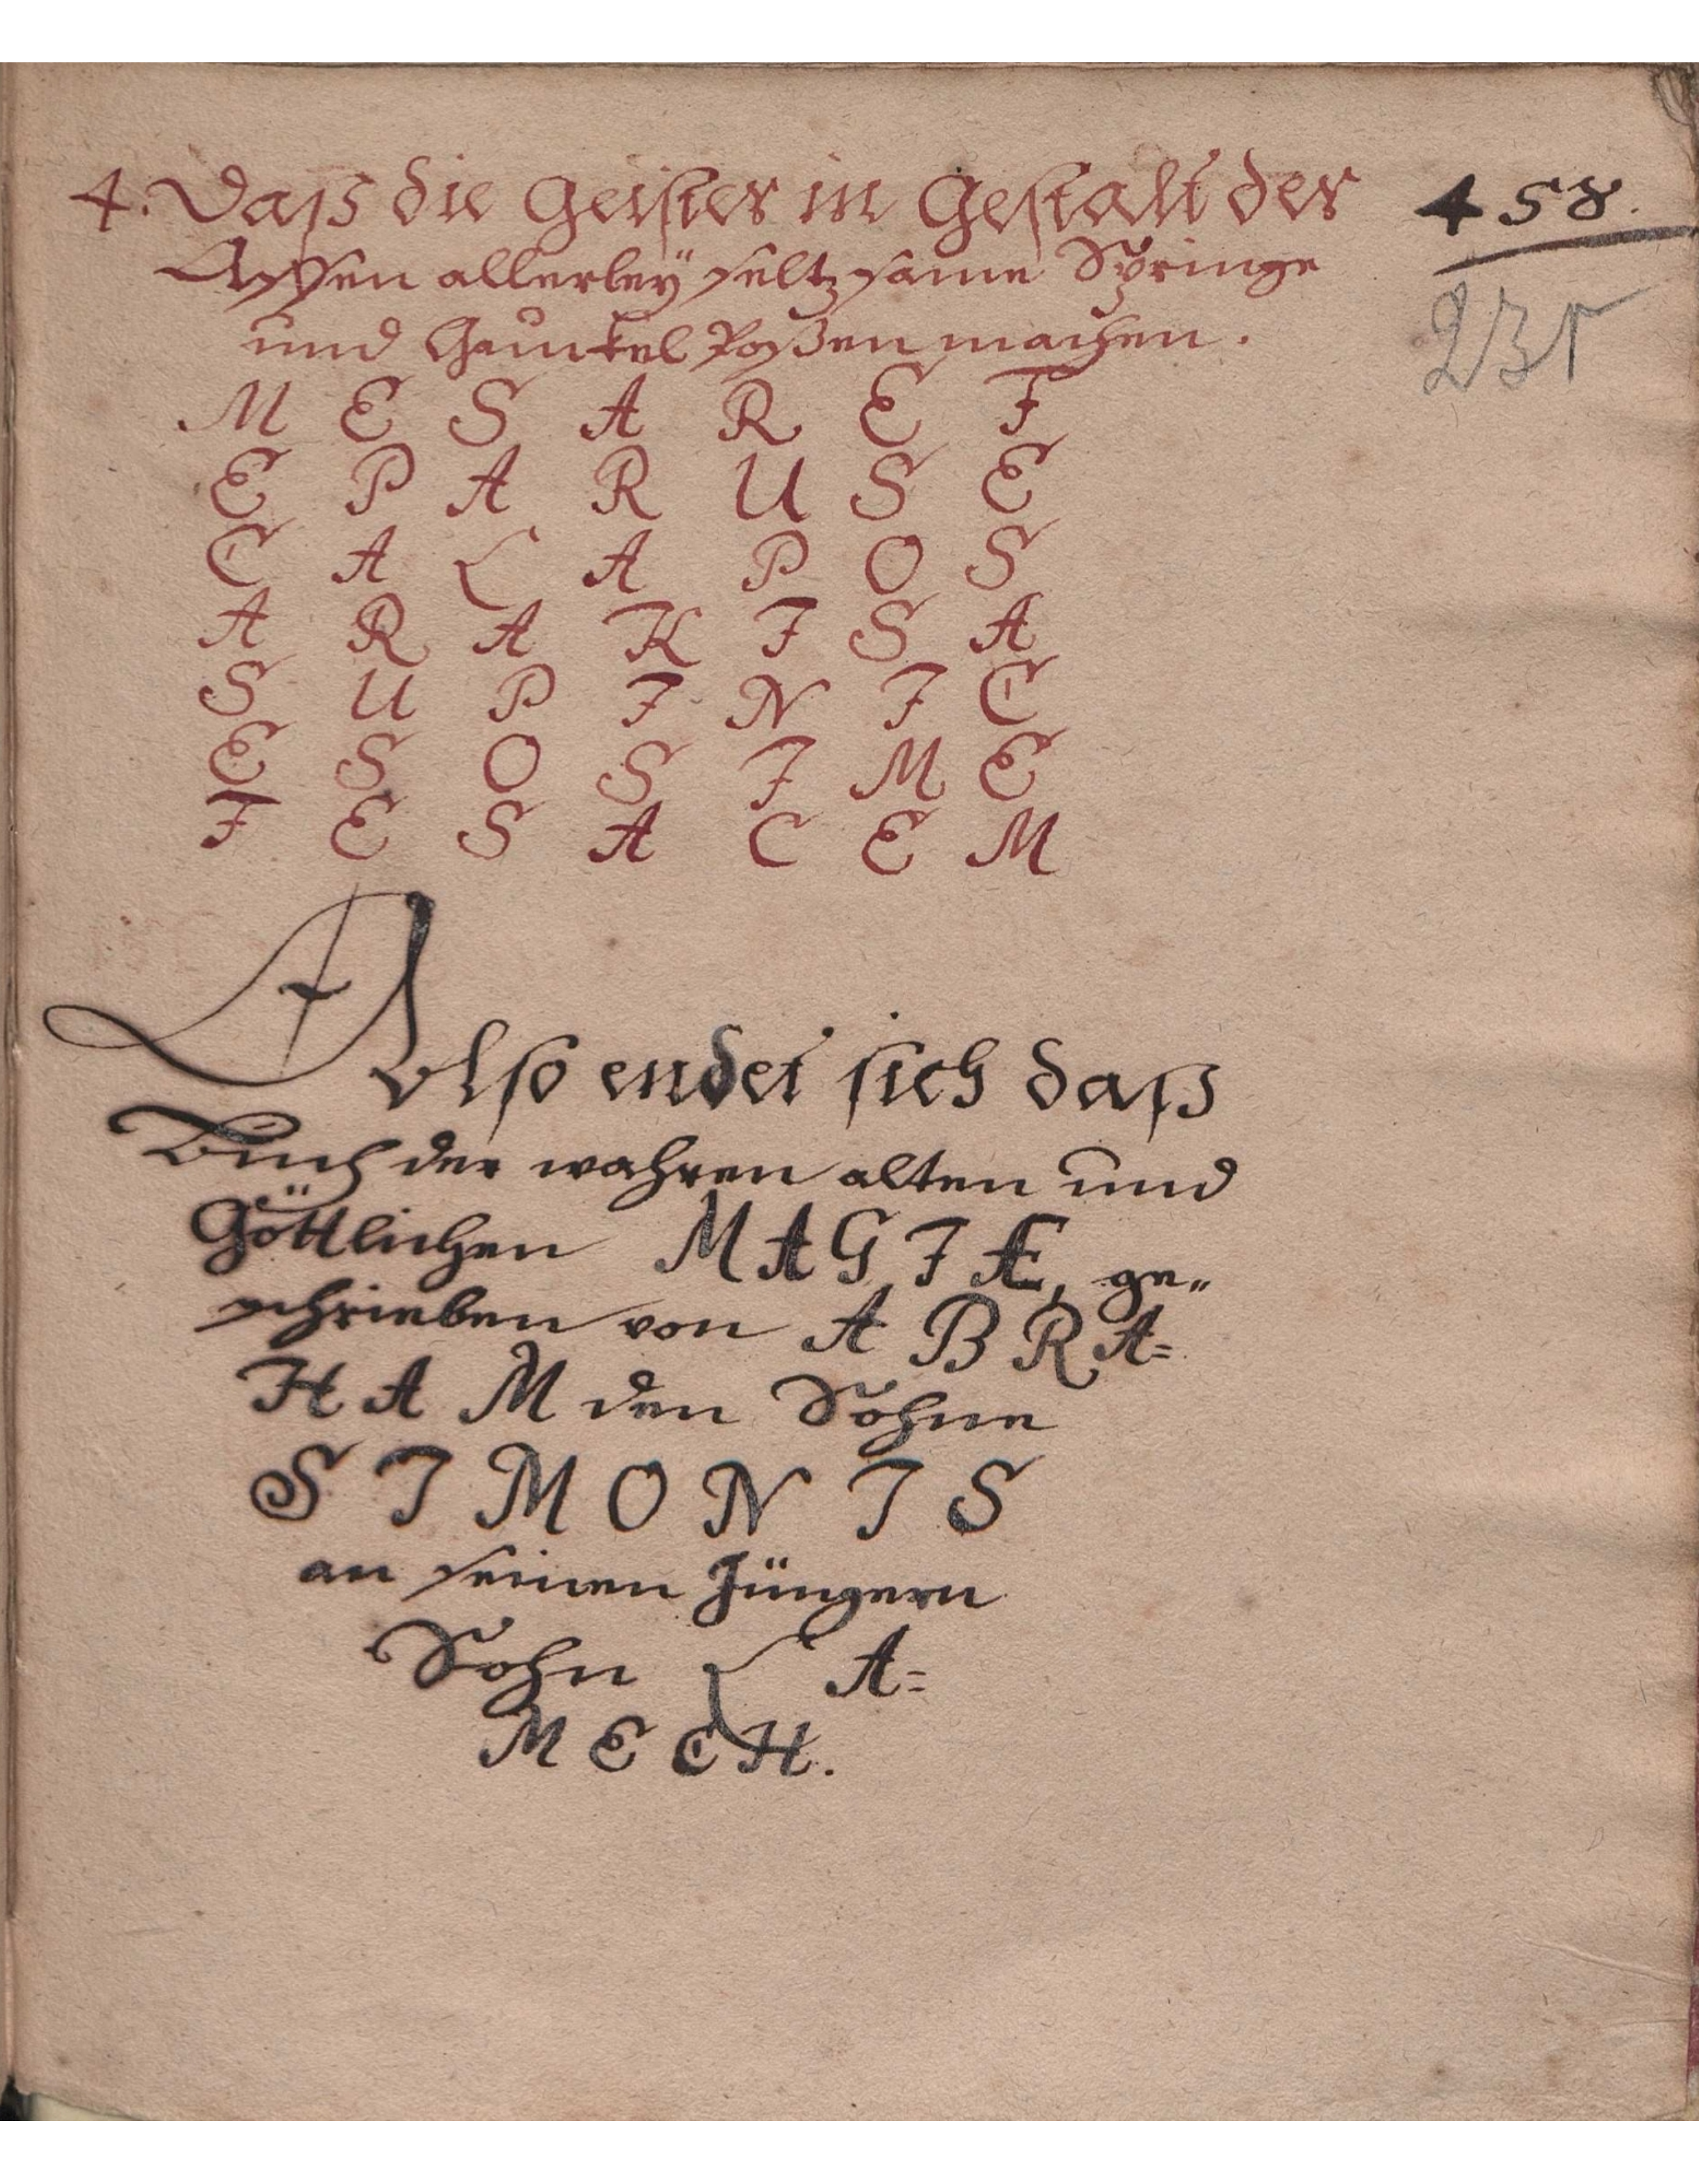 4. Daß die Geister in Gestalt der
Affen allerleÿ seltzsame Springe
und Gaunkel Poßen machen.
458.
231
M E S A R E F
E P A R U S E
C A L A P O S
A R A K I S A
S U P I N I C
E S O S I M E
F E S A C E M
Also endet sich daß
Buch der wahren alten und
Göttlichen MAGIÆ, ge„
schrieben von ABRA=
HAM den Sohne
SIMONIS
an seinen Jüngern
Sohn LA=
MECH.